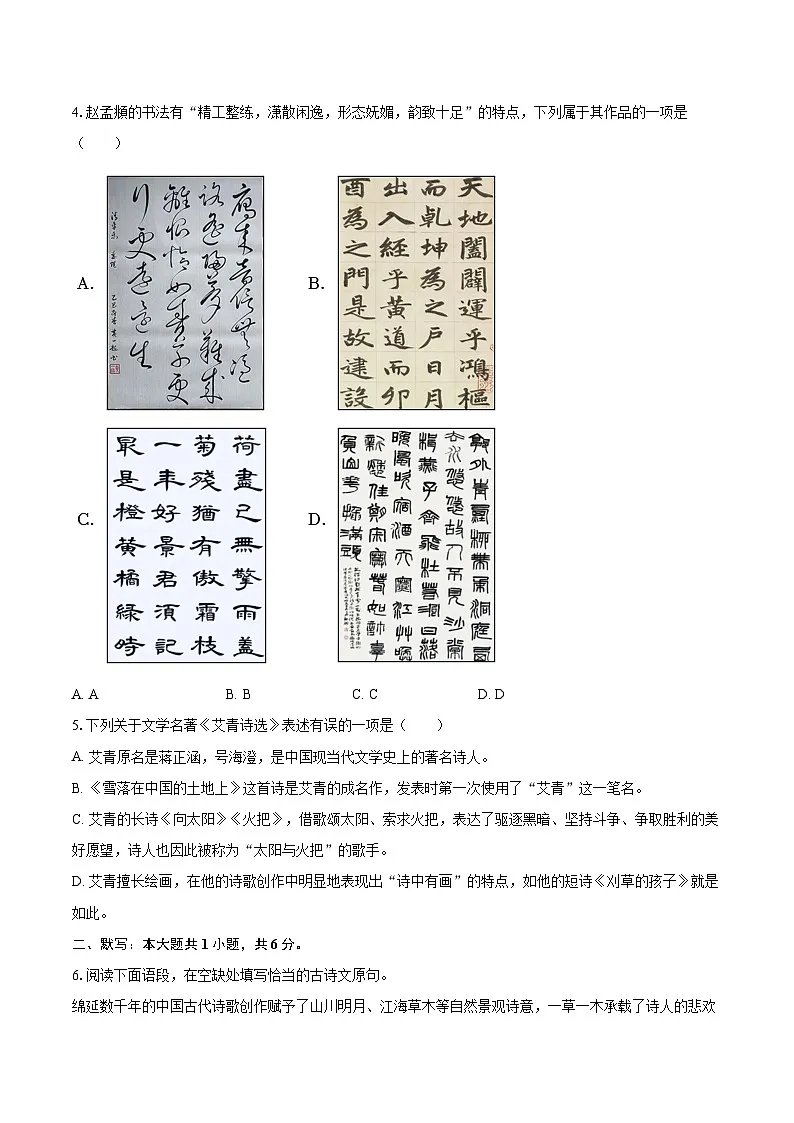 4. 赵孟頫的书法有“精工整练，潇散闲逸，形态妩媚，韵致十足”的特点，下列属于其作品的一项是
（　　）
A.
雁来音信无凭
路遥归梦难成
离恨恰如春草更
行更远还生
清平乐
B.
天地阖辟运乎鸿枢
而乾坤为之户日月
出入经乎黄道而卯
酉為之門是故建設
C.
荷盡已無擎雨盖
菊殘猶有傲霜枝
一年好景君須記
最是橙黄橘緑時
D.
A. A
B. B
C. C
D. D
5. 下列关于文学名著《艾青诗选》表述有误的一项是（　　）
A. 艾青原名是蒋正涵，号海澄，是中国现当代文学史上的著名诗人。
B. 《雪落在中国的土地上》这首诗是艾青的成名作，发表时第一次使用了“艾青”这一笔名。
C. 艾青的长诗《向太阳》《火把》，借歌颂太阳、索求火把，表达了驱逐黑暗、坚持斗争、争取胜利的美
好愿望，诗人也因此被称为“太阳与火把”的歌手。
D. 艾青擅长绘画，在他的诗歌创作中明显地表现出“诗中有画”的特点，如他的短诗《刈草的孩子》就是
如此。
二、默写：本大题共 1 小题，共 6 分。
6. 阅读下面语段，在空缺处填写恰当的古诗文原句。
绵延数千年的中国古代诗歌创作赋予了山川明月、江海草木等自然景观诗意，一草一木承载了诗人的悲欢